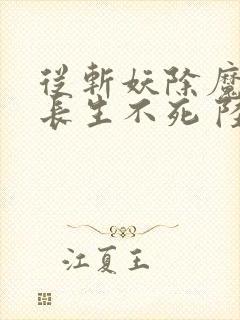 從斬妖除魔
長生不死
江夏王